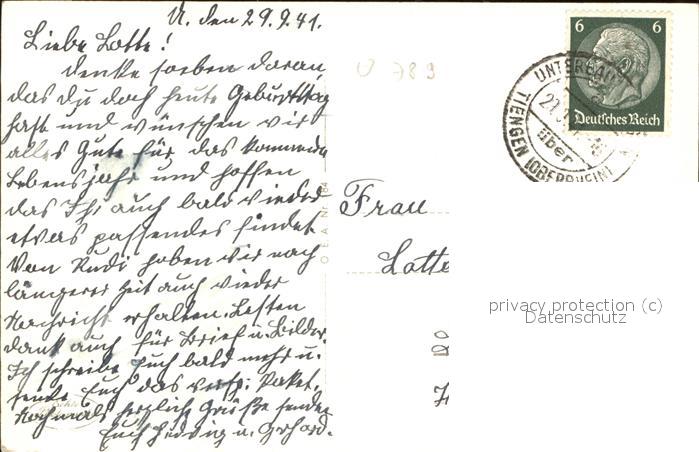 U. den 29.9.41.
Liebe Lotte!
denke soeben daran,
das du doch heute Geburtstag
hast und wünschen wir
alles Gute für das kommende
Lebensjahr und hoffen
das Ihr auch bald wieder
etwas passendes findet.
Von Rudi haben wir nach
längerer Zeit auch wieder
Nachricht erhalten. Besten
dank auch für Brief u. Bilder.
Ich schreibe Euch bald mehr u.
sende Euch das verspr. Paket.
Nochmals herzliche Grüße senden
Euch Hedwig u. Gerhard.
O 789
6 6
Deutsches Reich
UNTER
über
TIENGEN (OBERRHEIN)
Frau
Lotte
privacy protection (c)
Datenschutz